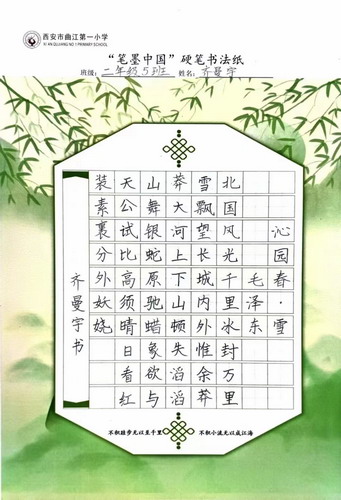 西安市曲江第一小学
XI'AN QUJIANG NO.1 PRIMARY SCHOOL
“笔墨中国”硬笔书法纸
班级：二年级5班 姓名：齐曼宇
沁园春·雪
毛泽东
北国风光千里冰封万里
雪飘望长城内外惟余莽
莽大河上下山顿失滔滔
山舞银蛇原驰蜡象欲与
天公试比高须晴日看红
装素裹分外妖娆
齐曼宇书
不积跬步无以至千里 不积小流无以成江海